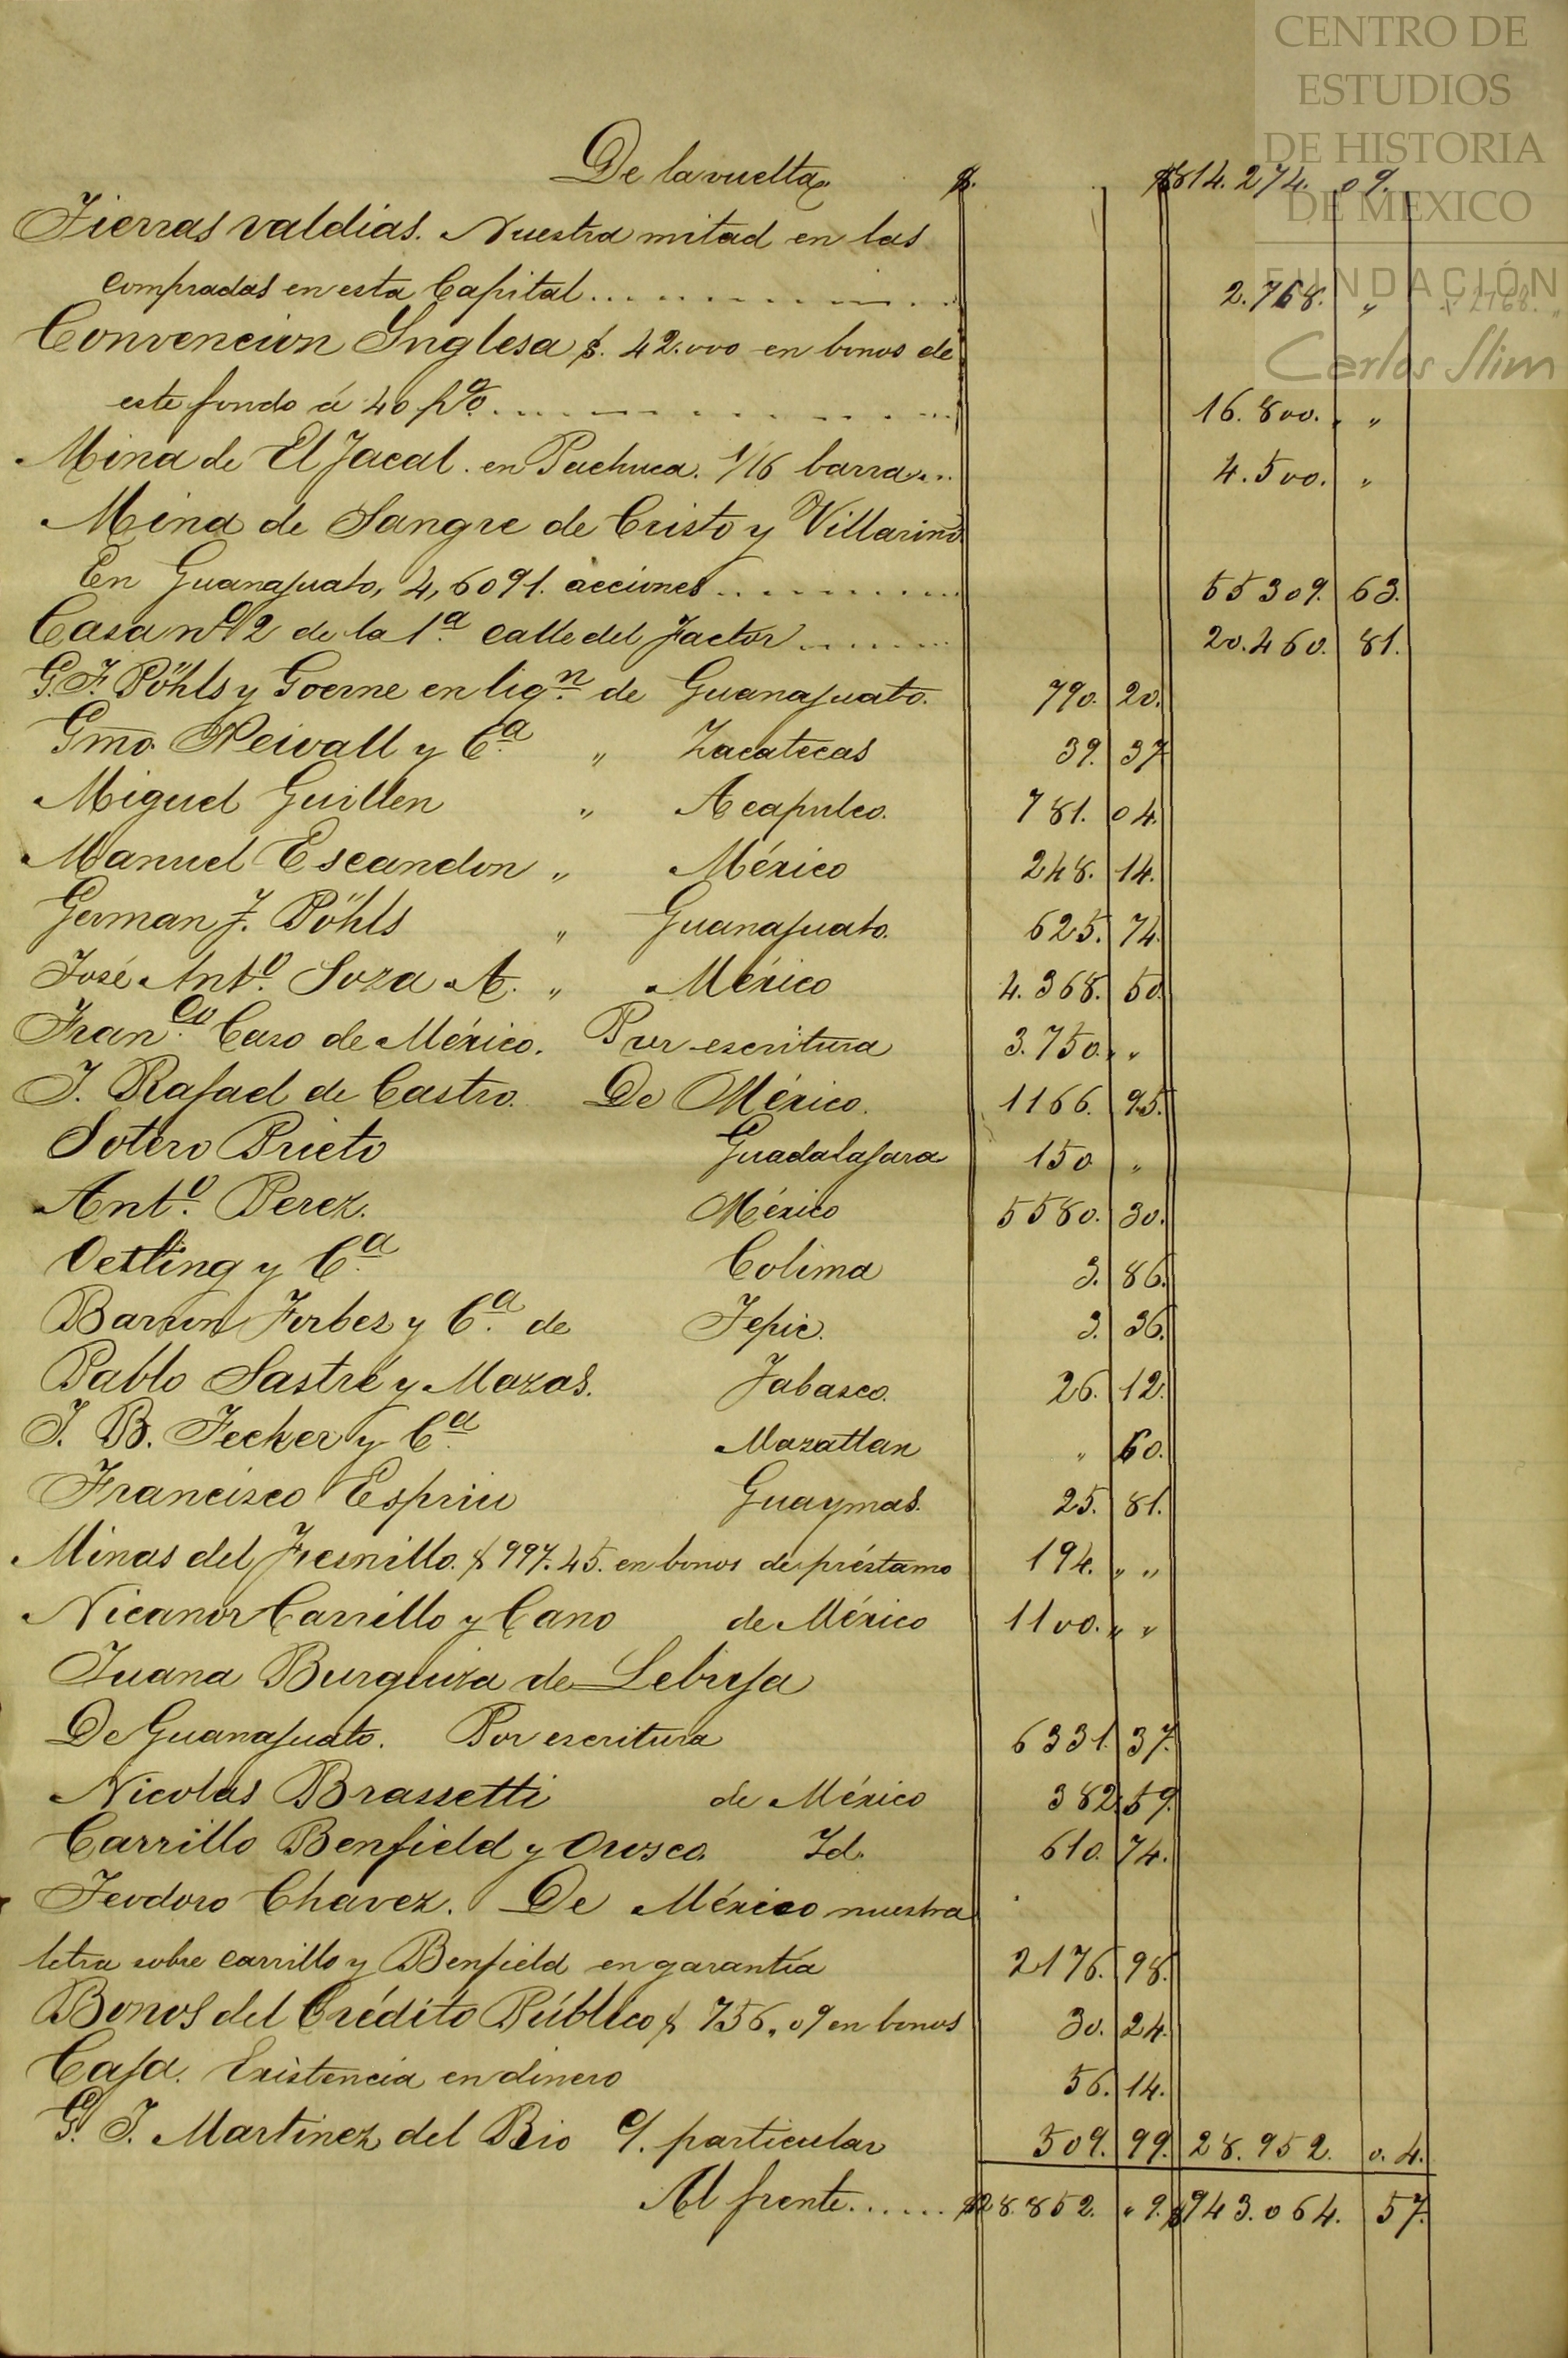 CENTRO DE
ESTUDIOS
DE HISTORIA
DE MEXICO
FUNDACIÓN
Carlos Slim
De la vuelta $. $814.274. 09.
Tierras valdias. Nuestra mitad en las
compradas en esta Capital.......... 2.768. „ 2768. „
Convencion Ynglesa $. 42.000 en bonos de
este fondo á 40 p%.......... 16.800. „
Mina de El Jacal. en Pachuca. 1/16 barra... 4.500. „
Mina de Sangre de Cristo y Villarino
En Guanajuato, 4,6091. acciones.......... 55309. 63.
Casa nº 2 de la 1.ª calle del Factor....... 20.460. 81.
G. F. Pöhls y Goerne en liqn. de Guanajuato. 790. 20.
Gmo. Newall y Cª. „ Zacatecas 39. 37
Miguel Guillen „ Acapulco. 781. 04.
Manuel Escandon „ México 248. 14.
German F. Pöhls „ Guanajuato. 625. 74.
José Antº. Soza A. „ México 4.368. 50.
Franco. Caso de México. Por escritura 3.750. „
J. Rafael de Castro. De México. 1166. 95.
Sotero Prieto Guadalajara 150 „
Antº. Perez. México 5580. 30.
Oetling y Cª. Colima 3. 86.
Barron Forbes y Cª. de Tepic. 3. 36.
Pablo Sastré y Mazas. Tabasco. 26. 12.
J. B. Jecker y Cª. Mazatlan „ 60.
Francisco Espriu Guaymas. 25. 81.
Minas del Fresnillo. $997.45. en bonos de préstamo 194. „ „
Nicanor Carrillo y Cano de México 1100. „ „
Juana Burguiza de Lebrija
De Guanajuato. Por escritura 6331. 37.
Nicolas Brassetti de México 382. 59.
Carrillo Benfield y Orosco. Id. 610. 74.
Teodoro Chavez. De México nuestra
letra sobre carrillo y Benfield en garantía 2176. 98.
Bonos del Crédito Público $ 756,09 en bonos 30. 24.
Caja. Existencia en dinero 56. 14.
G. J. Martinez del Rio c/. particular 509. 99. 28.952. 0.4.
Al frente...... $28.852. „9. $943.064. 57.